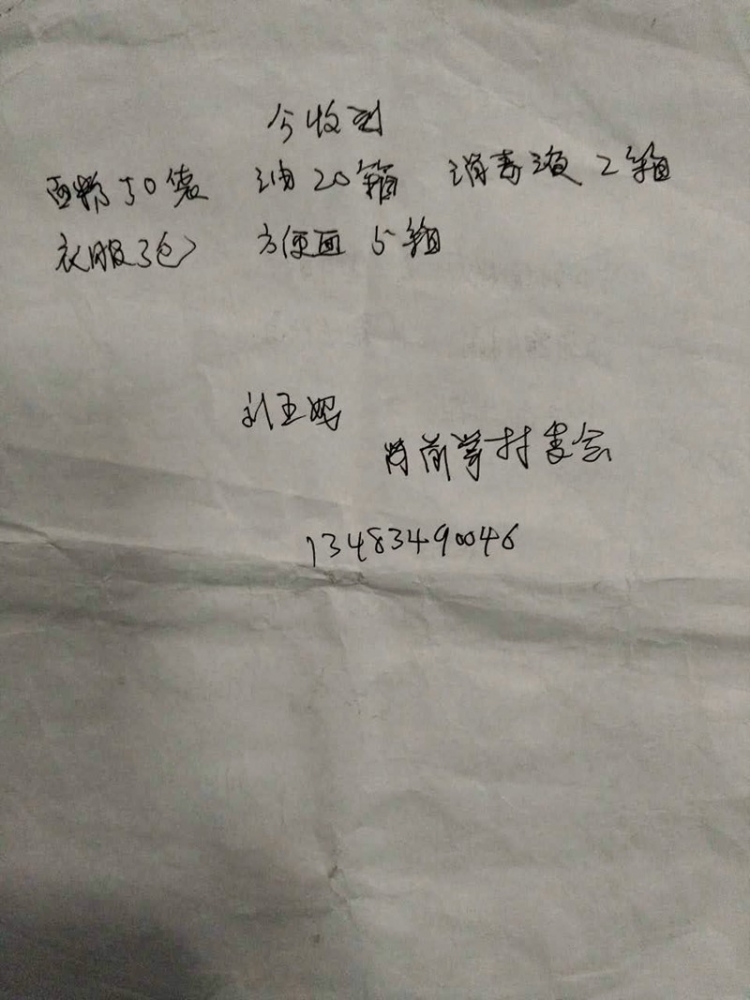 今收到
面粉50袋 油20箱 消毒液2箱
衣服3包 方便面5箱
村委会
13483490046